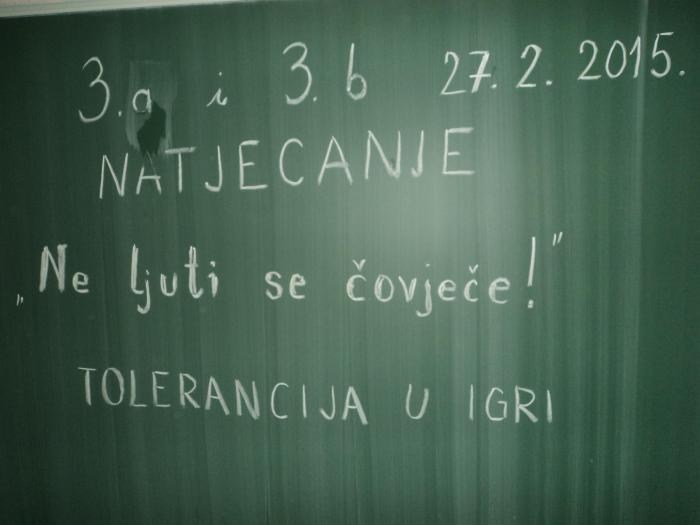 3.a i 3.b 27.2.2015.
NATJECANJE
„Ne ljuti se čovječe!”
TOLERANCIJA U IGRI